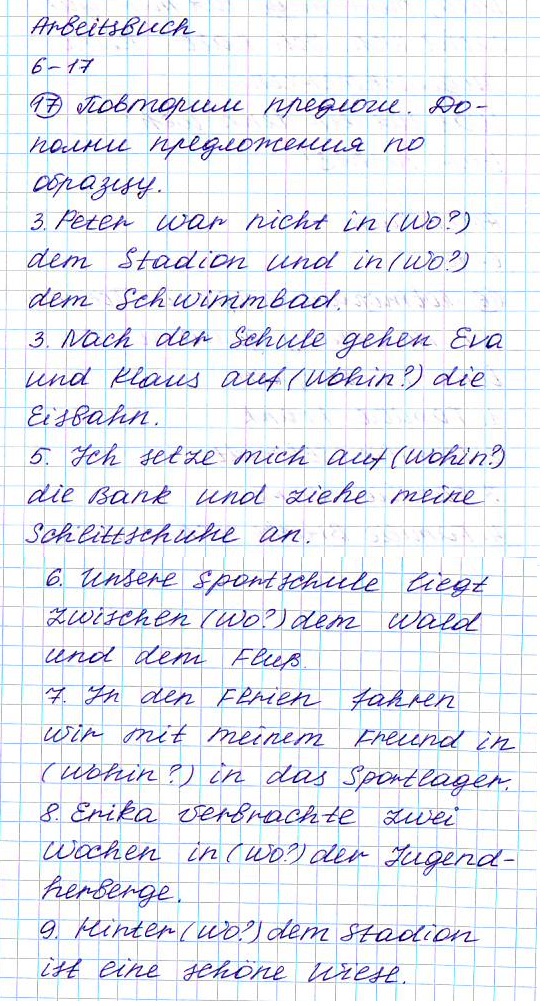 Arbeitsbuch
6-17
17 Повторим предлоги. До-
полни предложения по
образцу.
3. Peter war nicht in (Wo?)
dem Stadion und in (Wo?)
dem Schwimmbad.
3. Nach der Schule gehen Eva
und Klaus auf (Wohin?) die
Eisbahn.
5. Ich setze mich auf (Wohin?)
die Bank und ziehe meine
Schlittschuhe an.
6. Unsere Sportschule liegt
zwischen (Wo?) dem Wald
und dem Fluß.
7. In den Ferien fahren
wir mit meinem Freund in
(Wohin?) in das Sportlager.
8. Erika verbrachte zwei
Wochen in (Wo?) der Jugend-
herberge.
9. Hinter (Wo?) dem Stadion
ist eine schöne Wiese.